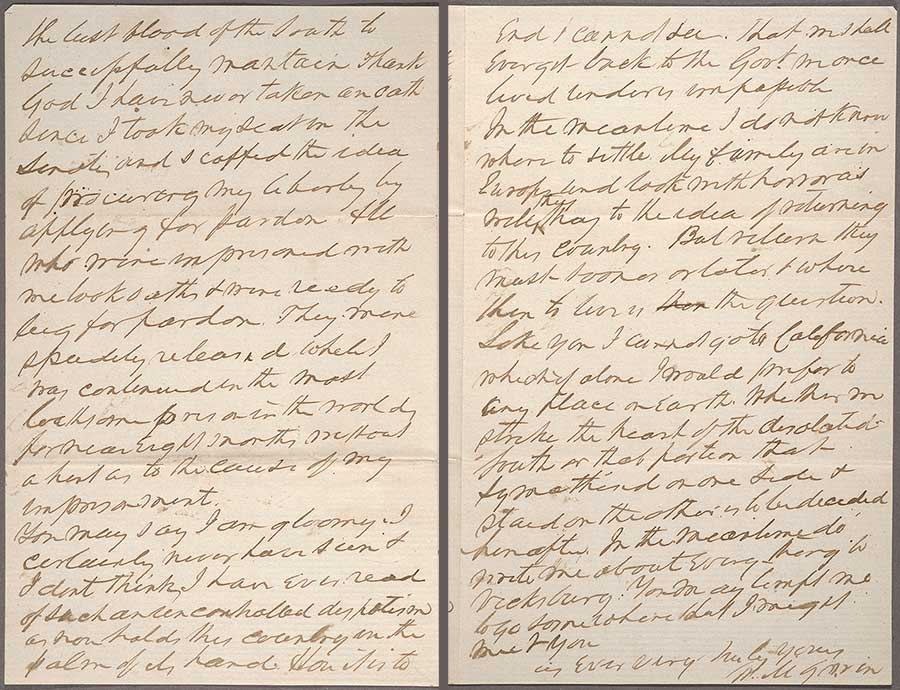 the last blood of the South to
successfully mantain. Thank
God I have never taken an oath
since I took my seat in the
Senate, and scoffed the idea
of procureing my liberty by
applying for pardon. All
who were imprisoned with
me took oaths & were ready to
beg for pardon. They were
speadily released while I
was continued in the most
loathsome prison in the world
for near eight months without
a hint as to the cause of my
imprisonment.
You may say I am gloomy. I
certainly never have seen &
I dont think I have ever read
of such an uncontrolled despotism
as now holds this country in the
palm of its hand. How it is to
End I cannot see. That we shall
Ever get back to the Govt we once
lived under is impossible
In the meantime I do not know
where to settle. My family are in
Europe and look with horror as
well they may to the idea of returning
to this country. But return they
must sooner or later & where
then to live is the question.
Like you I cannot go to California
which if alone I would prefer to
any place on Earth. Whether we
strike the heart of the desolated
South or that portion that
sympathised on one side &
staid on the other is to be decided
hereafter. In the meantime do
write me about Every thing in
Vicksburg. You may tempt me
to go somewhere but I might
meet you
as Ever very truly yours
W. M. Gwin